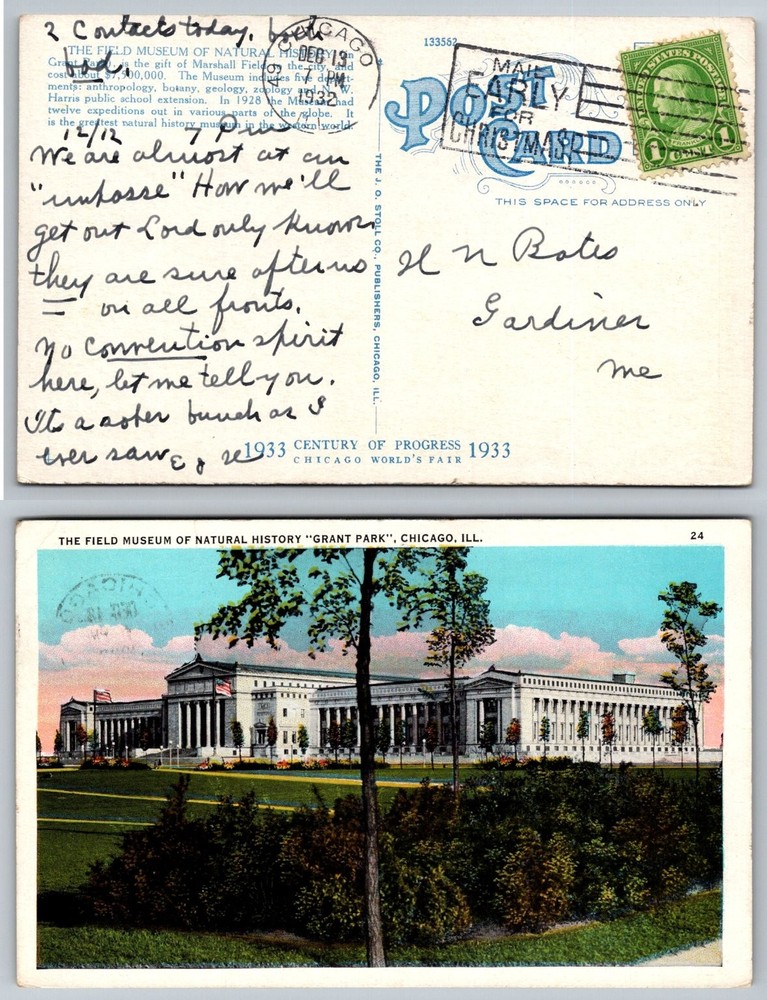 2 Contacts today, both
bad.
THE FIELD MUSEUM OF NATURAL HISTORY in
Grant Park is the gift of Marshall Field to the city, and
cost about $7,500,000. The Museum includes five depart-
ments: anthropology, botany, geology, zoology and N. W.
Harris public school extension. In 1928 the Museum had
twelve expeditions out in various parts of the globe. It
is the greatest natural history museum in the western world
12/12 7 Pm
We are almost at an
"imhasse" How we'll
get out Lord only knows
they are sure after us
= on all fronts.
No convention spirit
here, let me tell you.
It's a sober bunch as I
ever saw
1933 CENTURY OF PROGRESS 1933
CHICAGO WORLD'S FAIR
THE J. O. STOLL CO., PUBLISHERS, CHICAGO, ILL.
CHICAGO
DEC 13
PM
1932
133562
POST
CARD
MAIL
EARLY
FOR
CHRISTMAS
UNITED STATES POSTAGE
FRANKLIN
1 CENT 1
THIS SPACE FOR ADDRESS ONLY
H N Bates
Gardiner
Me
THE FIELD MUSEUM OF NATURAL HISTORY "GRANT PARK", CHICAGO, ILL. 24